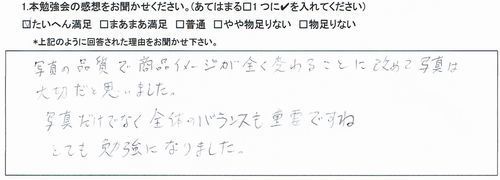 1.本勉強会の感想をお聞かせください。(あてはまる□1つに✔を入れてください)
☑たいへん満足 □まあまあ満足 □普通 □やや物足りない □物足りない
*上記のように回答された理由をお聞かせ下さい。
写真の品質で商品イメージが全く変わることに改めて写真は
大切だと思いました。
写真だけでなく全体のバランスも重要ですね
とても勉強になりました。